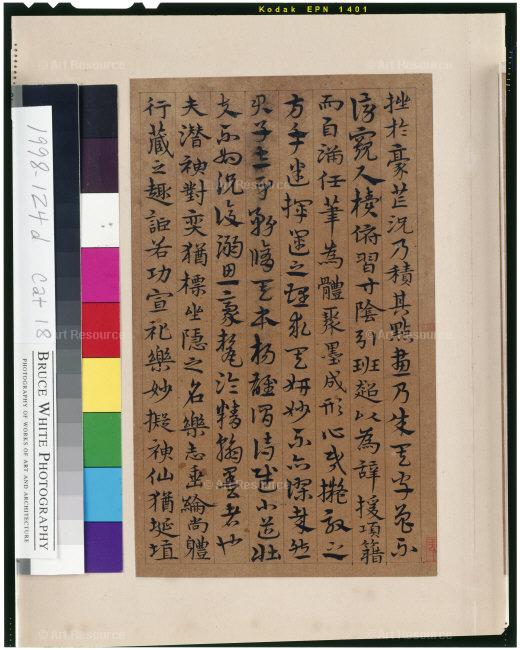 Kodak EPN 1401
挫於豪芒況乃積其點畫乃成其字曾不
傍窺尺牘俯習寸陰引班超以為辭援項籍
而自滿任筆為體聚墨成形心昏擬效之
方手迷揮運之理求其妍妙不亦謬哉然
君子立身務脩其本楊雄謂詩賦小道壯
夫不為況復溺思豪氂淪精翰墨者也
夫潛神對奕猶標坐隱之名樂志垂綸尚體
行藏之趣詎若功宣礼樂妙擬神仙猶埏埴
1998-124d cat 18
BRUCE WHITE PHOTOGRAPHY
PHOTOGRAPHY OF WORKS OF ART AND ARCHITECTURE
© Art Resource